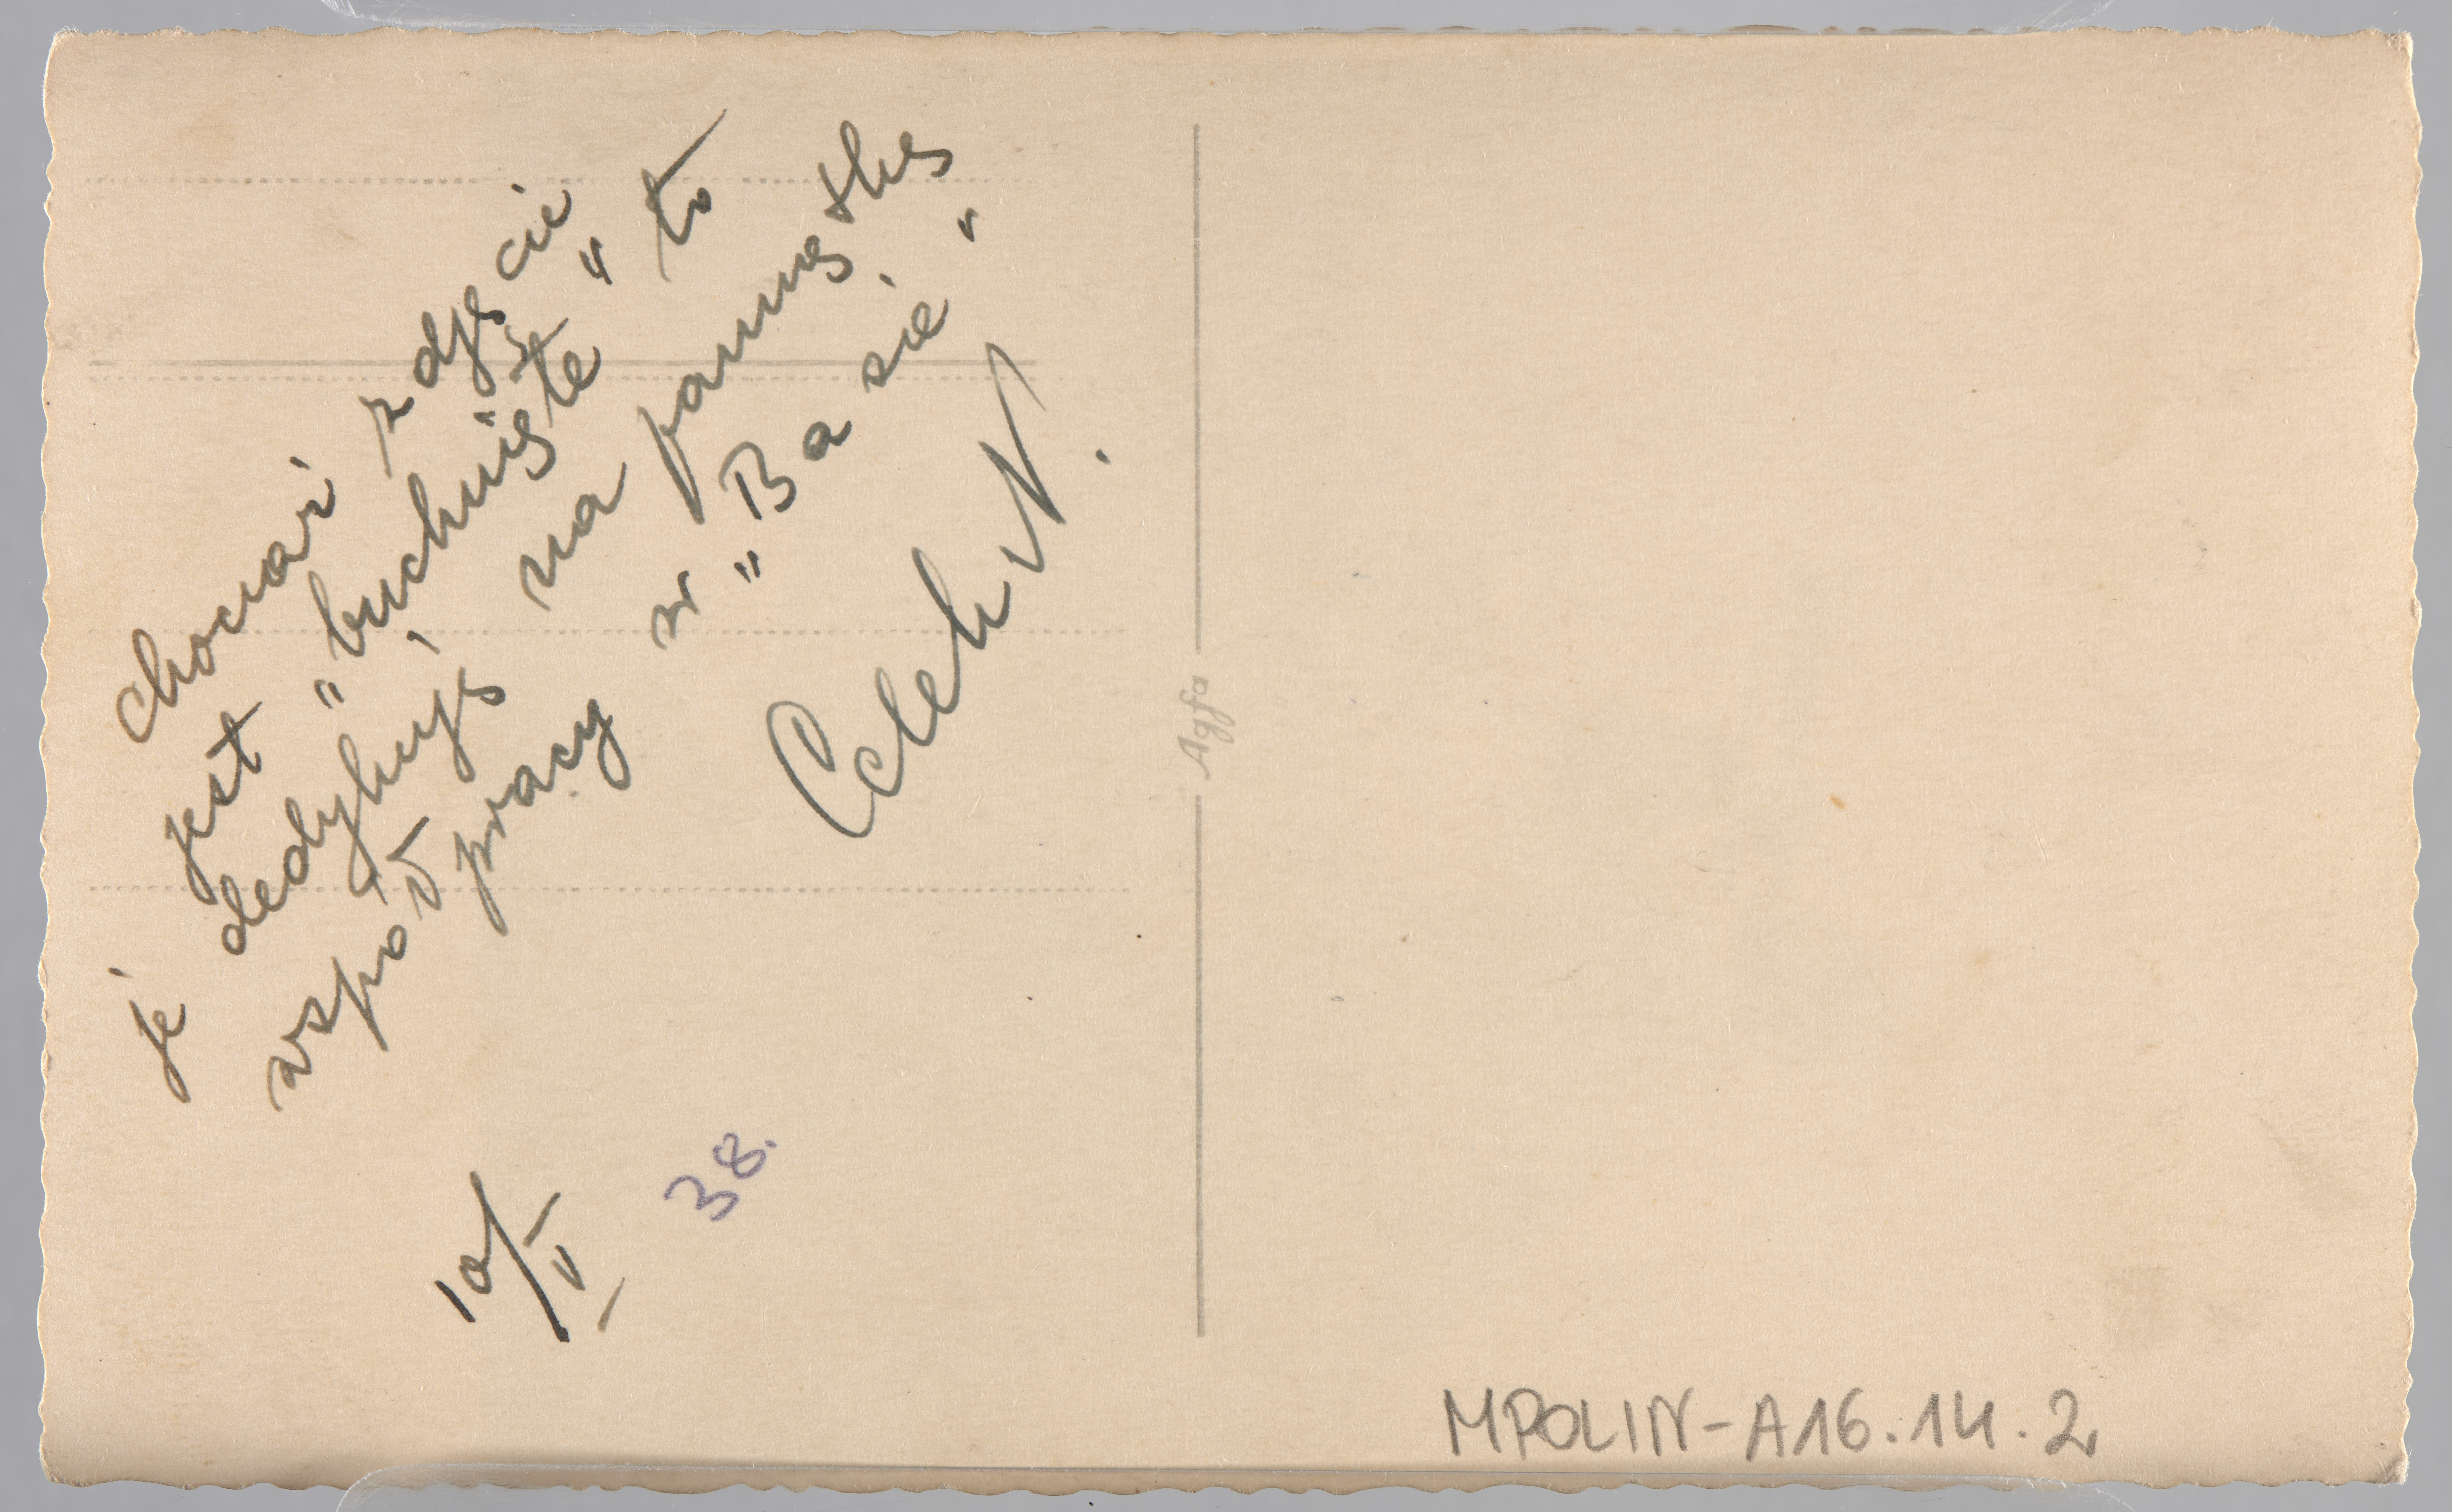 chociaż zdjęcie
jest "buchnięte" to
je dedykuję, na pamiątkę
współpracy w "Basie"
10/II 38.
Agfa
MPOLIN-A16.14.2